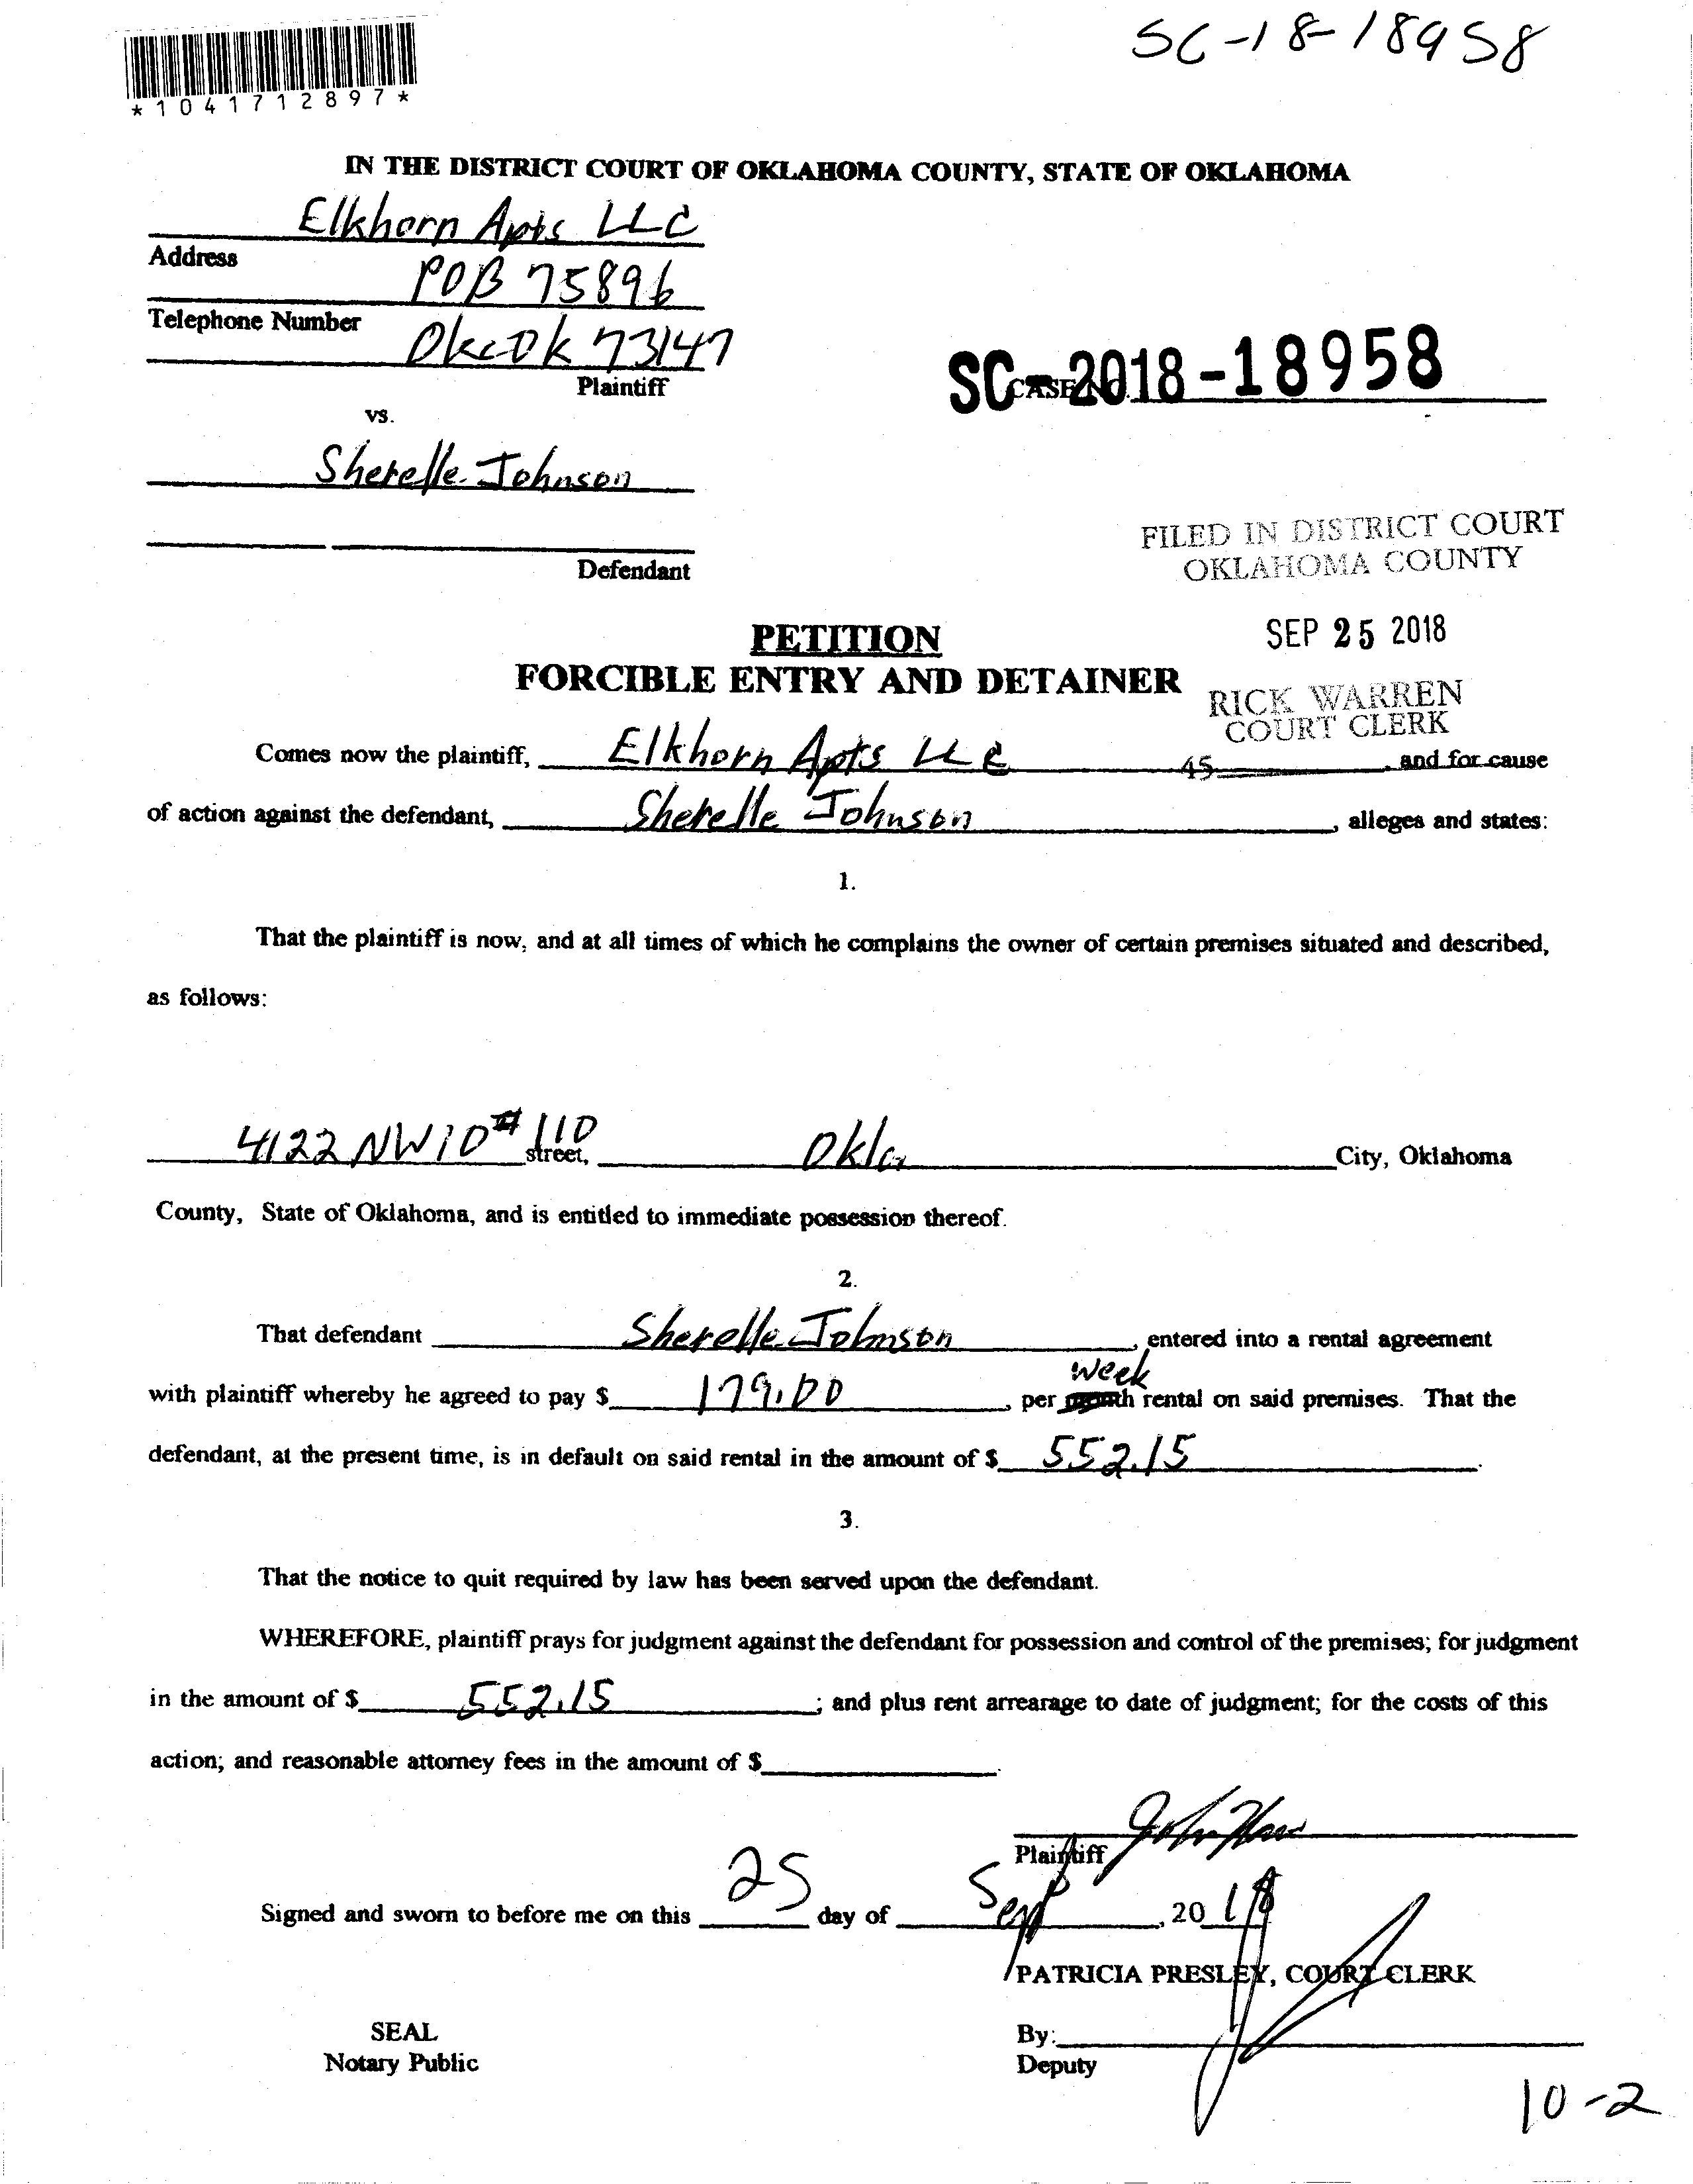 SC-18-18958
*1041712897*
IN THE DISTRICT COURT OF OKLAHOMA COUNTY, STATE OF OKLAHOMA
Elkhorn Apts LLC
Address
POB 75896
Telephone Number
Okc Ok 73147
Plaintiff
SC-2018-18958
CASE NO.
vs.
Sherelle Johnson
Defendant
FILED IN DISTRICT COURT
OKLAHOMA COUNTY
SEP 25 2018
RICK WARREN
COURT CLERK
45
PETITION
FORCIBLE ENTRY AND DETAINER
Comes now the plaintiff, Elkhorn Apts LLC, and for cause
of action against the defendant, Sherelle Johnson, alleges and states:
1.
That the plaintiff is now, and at all times of which he complains the owner of certain premises situated and described,
as follows:
4122 NW 10 # 110 street, Okla City, Oklahoma
County, State of Oklahoma, and is entitled to immediate possession thereof.
2.
That defendant Sherelle Johnson, entered into a rental agreement
week
with plaintiff whereby he agreed to pay $ 179.00, per month rental on said premises. That the
defendant, at the present time, is in default on said rental in the amount of $ 552.15.
3.
That the notice to quit required by law has been served upon the defendant.
WHEREFORE, plaintiff prays for judgment against the defendant for possession and control of the premises; for judgment
in the amount of $ 552.15; and plus rent arrearage to date of judgment; for the costs of this
action; and reasonable attorney fees in the amount of $ .
Plaintiff
Signed and sworn to before me on this 25 day of Sept, 2018
PATRICIA PRESLEY, COURT CLERK
SEAL
Notary Public
By:
Deputy
10-2